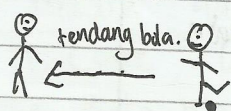 tendang bola.